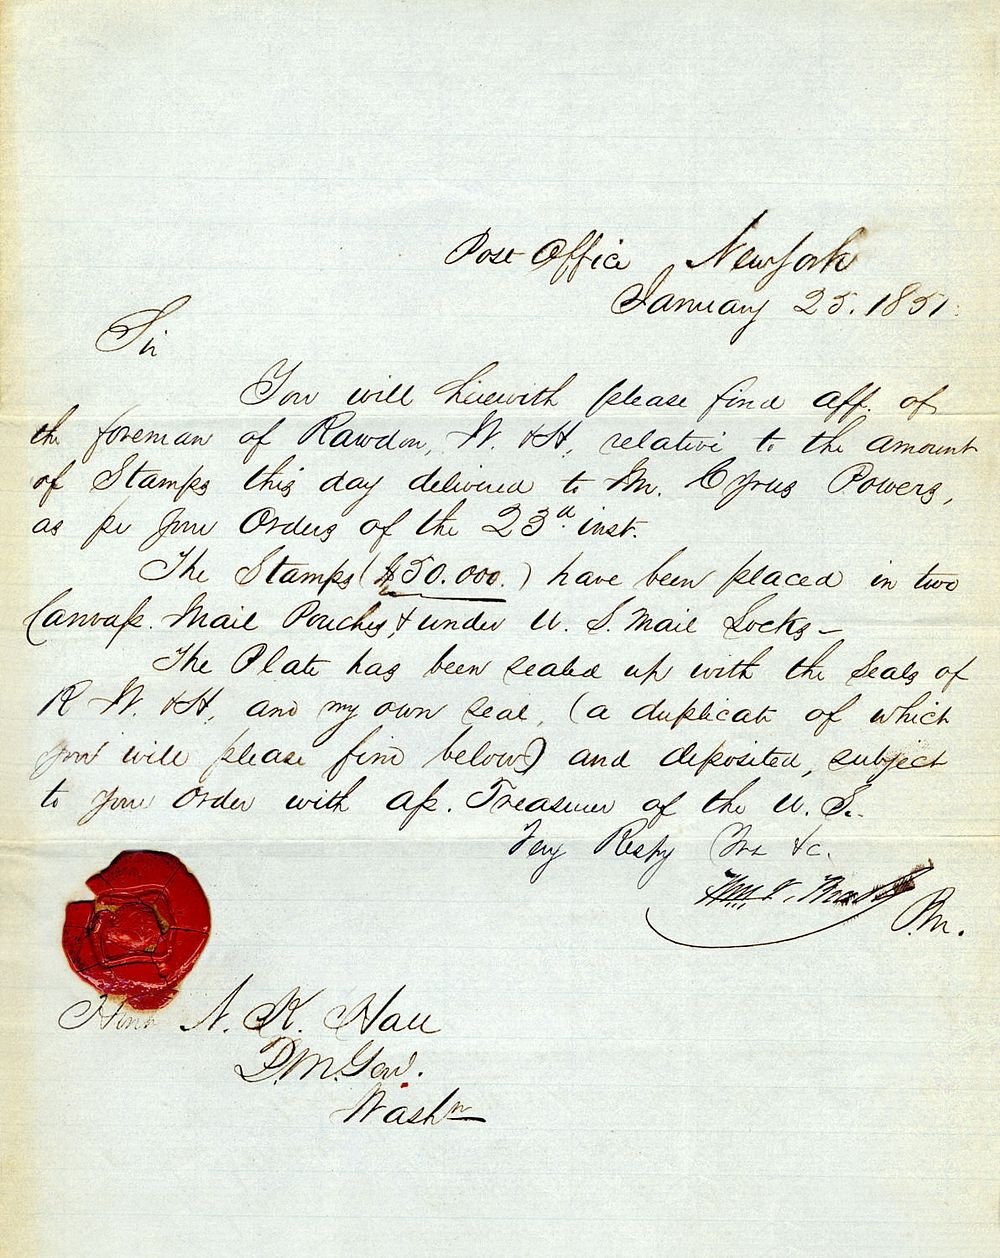 Post Office New York
January 25. 1851.
Sir
You will herewith please find aff. of
the foreman of Rawdon, W. & H, relative to the amount
of Stamps this day delivered to Mr. Cyrus Powers,
as per your Orders of the 23d. inst.
The Stamps ($50.000.) have been placed in two
Canvass Mail Pouches, & under U. S. Mail Locks—
The Plate has been sealed up with the Seals of
R W. & H, and my own seal, (a duplicate of which
you will please find below) and deposited, subject
to your Order with ass. Treasurer of the U. S.
Very Respy Yrs &c.
Wm. V. Brady
P.M.
Honr N. K. Hall
P.M. Genl.
Washn